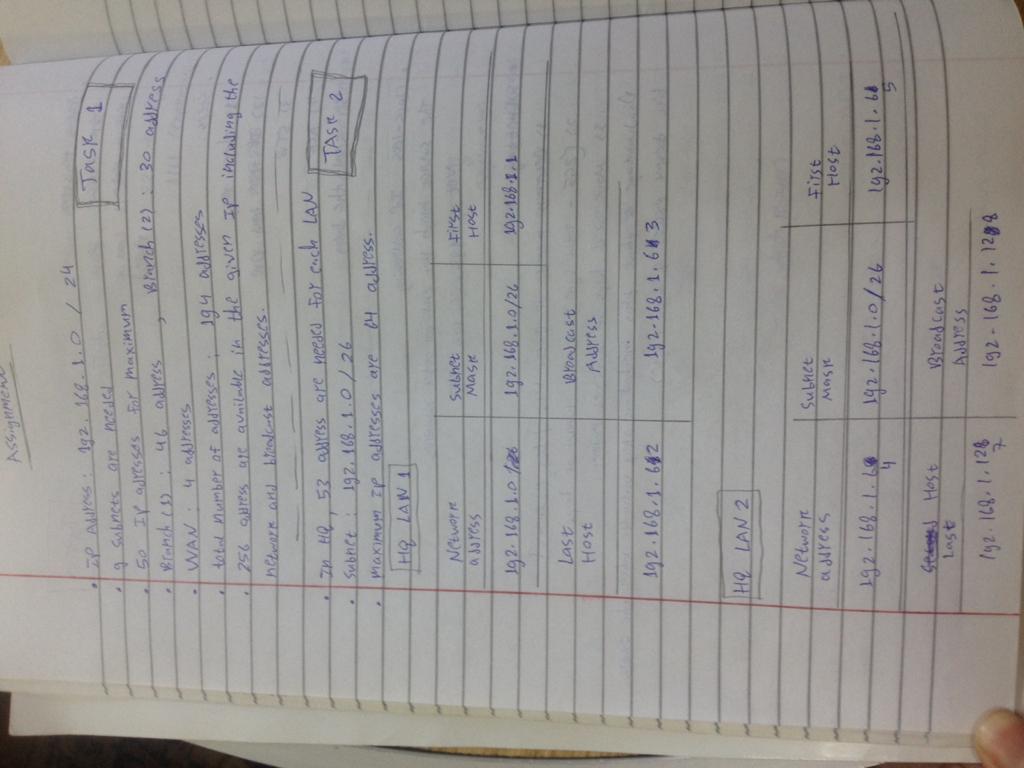 Assignment
• IP address : 192.168.1.0 / 24
Task 1
• 9 subnets are needed
50 IP adresses for maximum
• Branch (1) : 46 address , Branch (2) : 30 address
• WAN : 4 addresses
• total number of addresses : 194 addresses
• 256 address are available in the given IP including the
network and broadcast addresses.
• In HQ, 53 address are needed for each LAN
TAsk 2
• subnet : 192.168.1.0 / 26
• maximum IP addresses are 64 address.
HQ LAN 1
Network address Subnet Mask First Host
192.168.1.0/26 192.168.1.0/26 192.168.1.1
Last Host Broadcast Address
192.168.1.62 192.168.1.63
HQ LAN 2
Network address Subnet Mask First Host
192.168.1.64 192.168.1.0/26 192.168.1.65
Last Host Broadcast Address
192.168.1.127 192.168.1.128